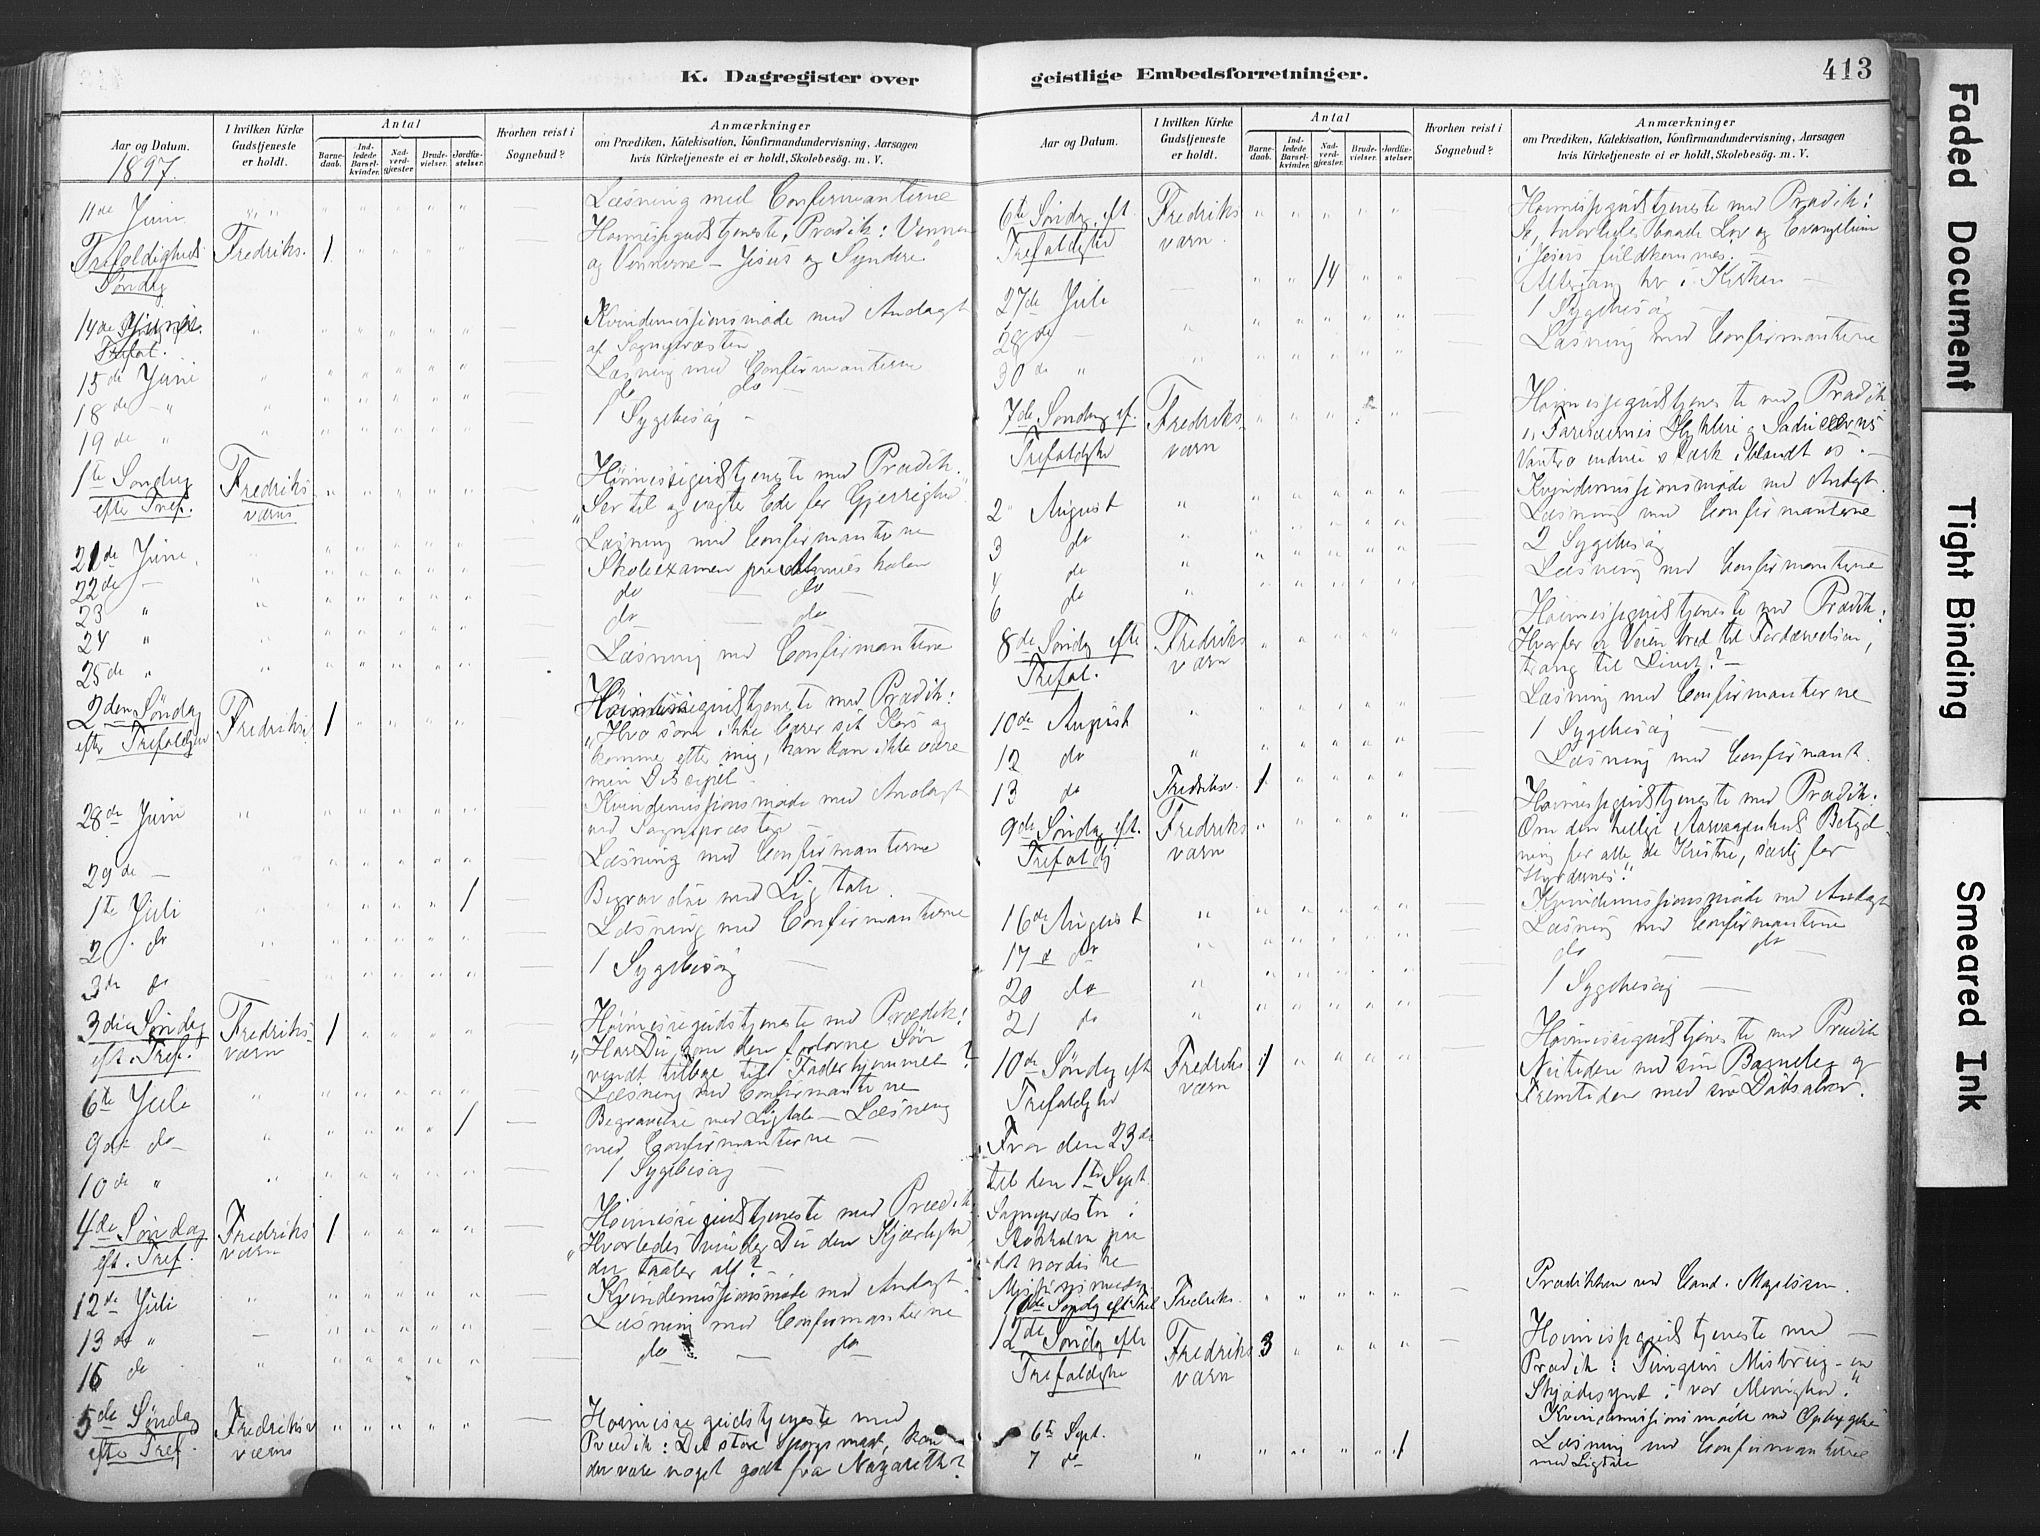 K. Dagregister over
Aar og Datum.
1897.
I hvilken Kirke
Gudstjeneste
er holdt.
Antal
Barne-
daab.
Ind-
ledede
Barsel-
kvinder.
Nad-
verd-
gjæster.
Brude-
vielser.
Jordfæ-
stelser.
Hvorhen reist i
Sognebud?
Anmærkninger
om Prædiken, Katekisation, Konfirmandundervisning, Aarsagen
hvis Kirketjeneste ei er holdt, Skolebesøg. m. V.
11de Juni Læsning med Confirmanterne
Trefoldigheds Fredriks. 1 Høimessegudstjeneste, Prædik: Vennen
Søndag og Vennerne - Jesus og Syndere
14de Juni Kvindemissionsmøde med Andagt
af Sognepræsten
15de Juni Læsning med Confirmanterne
18de - " do do -
19de " 1 Sygebesøg -
1te Søndag Fredriks- Høimessegudstjeneste med Prædik.
efter Tref. værns "Ser til og vogter Eder for Gjerrighed"
21de Juni Læsning med Confirmanterne
22de - Skoleexamen paa
23 " do do
24 " do do
25de " Læsning med Confirmanterne
2den Søndag Fredriks 1 Høimessegudstjeneste med Prædik:
efter "Hvo som ikke bærer sit Kors og
komme efter mig, han kan ikke være
min Discipel
28de Juni Kvindemissionsmøde med Andagt
ved Sognepræsten
29de - Læsning med Confirmanterne
1te Juli 1 Begravelse med Ligtale.
2 do Læsning med Confirmanterne
3de do 1 Sygebesøg -
3die Søndag Fredriks- 1 Høimessegudstjeneste med Prædik:
eft. Tref. værn "Har Du som den forlorne Søn
vendt tilbage til Faderhjemmet?
6te Juli Læsning med Confirmanterne
9de do 1 Begravelse med Ligtale - Læsning
med Confirmanterne -
10de " 1 Sygebesøg -
4de Søndag Fredriks 1 Høimessegudstjeneste med Prædik
eft. Tref. værn "Hvorledes vinder Du den Kjærlighed,
der taaler alt?
12de Juli Kvindemissionsmøde med Andagt
13de " Læsning med Confirmanterne
16 do do - do
5de Søndag Fredriks Høimessegudstjeneste med
efter Tref. værns Prædik: Det store Spørgsmaal, kan
der være noget godt fra Nazareth?
geistlige Embedsforretninger.
413
Aar og Datum.
I hvilken Kirke
Gudstjeneste
er holdt.
Antal
Barne-
daab.
Ind-
ledede
Barsel-
kvinder.
Nad-
verd-
gjæster.
Brude-
vielser.
Jordfæ-
stelser.
Hvorhen reist i
Sognebud?
Anmærkninger
om Prædiken, Katekisation, Konfirmandundervisning, Aarsagen
hvis Kirketjeneste ei er holdt, Skolebesøg. m. V.
6te Søndag eft. Fredriks Høimessegudstjeneste med Prædik:
værn. hvorledes baade Lov og Evangelium
i Jesus fuldkommes.
14 Altergang her i Kirken -
27de Juli 1 Sygebesøg
28de - Læsning med Confirmanterne
30de "
7de Søndag ef. Fredriks- Høimessegudstjeneste med Prædik
værn Farisæernes Hykleri og
Vantro endnu stærk iblandt os. -
2 August Kvindemissionsmøde med Andagt.
3 do Læsning med Confirmanterne
4 do 2 Sygebesøg
6 do Læsning med Confirmanterne
8de Søndag efte Fredriks Høimessegudstjeneste med Prædik:
Trefol. værn Hvorfor er Veien bred til Fordærvelsen,
trang til Livet? -
10de August Læsning med Confirmanterne
12 do 1 Sygebesøg
13 do Fredriksv. 1 Læsning med Confirmant.
9de Søndag eft. Fredriks Høimessegudstjeneste med Prædik:
værn Om den hellige Betyd-
ning for alle de Kristne, særlig for
Hyrdernes."
16de August Kvindemissionsmøde med Andagt
17 do Læsning med Confirmanterne
20 do do do
21 do 1 Sygebesøg -
10de Søndag eft Fredriks 1 Høimessegudstjeneste med Prædik
værn Nutiden med sin Barneleg og
Fremtiden med sin Dødsalvor.
Fra den 23de
til den 1te Sept.
Sognepræsten i
Stockholm paa
det nordiske
Fredriks. Prædikken ved Cand. Magelssen.
12de Søndag efte Fredriks 3 Høimessegudstjeneste med -
værn Prædik: Tungens Misbrug - en
Skjødesynd i vor Menighed."
6te Sept. Kvindemissionsmøde med
7 do 1 Læsning med Confirmanterne
med Ligtale
Faded Document
Tight Binding
Smeared Ink